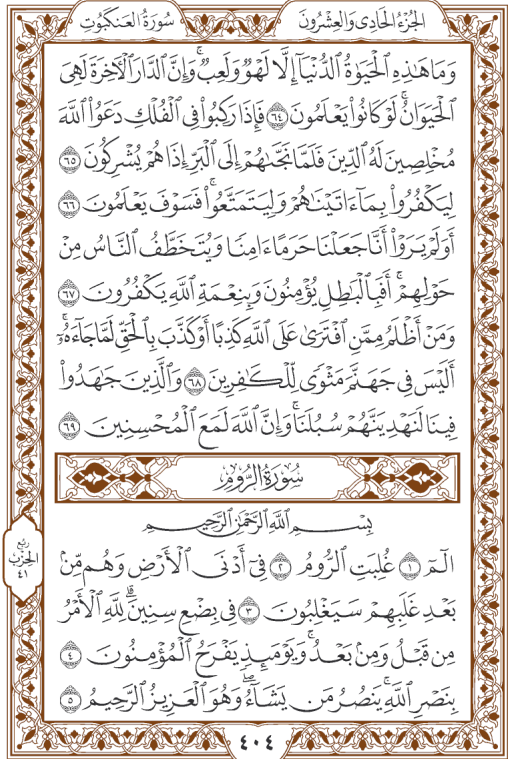 الجُزْءُ الحَادِي وَالعِشْرُونَ
سُورَةُ العَنكَبُوتِ
وَمَا هَٰذِهِ ٱلْحَيَوٰةُ ٱلدُّنْيَآ إِلَّا لَهْوٌ وَلَعِبٌ ۚ وَإِنَّ ٱلدَّارَ ٱلْأَخِرَةَ لَهِىَ
ٱلْحَيَوَانُ ۚ لَوْ كَانُوا۟ يَعْلَمُونَ ٦٤ فَإِذَا رَكِبُوا۟ فِى ٱلْفُلْكِ دَعَوُا۟ ٱللَّهَ
مُخْلِصِينَ لَهُ ٱلدِّينَ فَلَمَّا نَجَّىٰهُمْ إِلَى ٱلْبَرِّ إِذَا هُمْ يُشْرِكُونَ ٦٥
لِيَكْفُرُوا۟ بِمَآ ءَاتَيْنَٰهُمْ وَلِيَتَمَتَّعُوا۟ ۖ فَسَوْفَ يَعْلَمُونَ ٦٦
أَوَلَمْ يَرَوْا۟ أَنَّا جَعَلْنَا حَرَمًا ءَامِنًا وَيُتَخَطَّفُ ٱلنَّاسُ مِنْ
حَوْلِهِمْ ۚ أَفَبِٱلْبَٰطِلِ يُؤْمِنُونَ وَبِنِعْمَةِ ٱللَّهِ يَكْفُرُونَ ٦٧
وَمَنْ أَظْلَمُ مِمَّنِ ٱفْتَرَىٰ عَلَى ٱللَّهِ كَذِبًا أَوْ كَذَّبَ بِٱلْحَقِّ لَمَّا جَآءَهُۥٓ ۚ
أَلَيْسَ فِى جَهَنَّمَ مَثْوًى لِّلْكَٰفِرِينَ ٦٨ وَٱلَّذِينَ جَٰهَدُوا۟
فِينَا لَنَهْدِيَنَّهُمْ سُبُلَنَا ۚ وَإِنَّ ٱللَّهَ لَمَعَ ٱلْمُحْسِنِينَ ٦٩
سُورَةُ الرُّومِ
بِسْمِ ٱللَّهِ ٱلرَّحْمَٰنِ ٱلرَّحِيمِ
الٓمٓ ١ غُلِبَتِ ٱلرُّومُ ٢ فِىٓ أَدْنَى ٱلْأَرْضِ وَهُم مِّنۢ
بَعْدِ غَلَبِهِمْ سَيَغْلِبُونَ ٣ فِى بِضْعِ سِنِينَ ۗ لِلَّهِ ٱلْأَمْرُ
مِن قَبْلُ وَمِنۢ بَعْدُ ۚ وَيَوْمَئِذٍ يَفْرَحُ ٱلْمُؤْمِنُونَ ٤
بِنَصْرِ ٱللَّهِ ۚ يَنصُرُ مَن يَشَآءُ ۖ وَهُوَ ٱلْعَزِيزُ ٱلرَّحِيمُ ٥
رُبْعُ
الحِزْبِ
٤١
٤٠٤